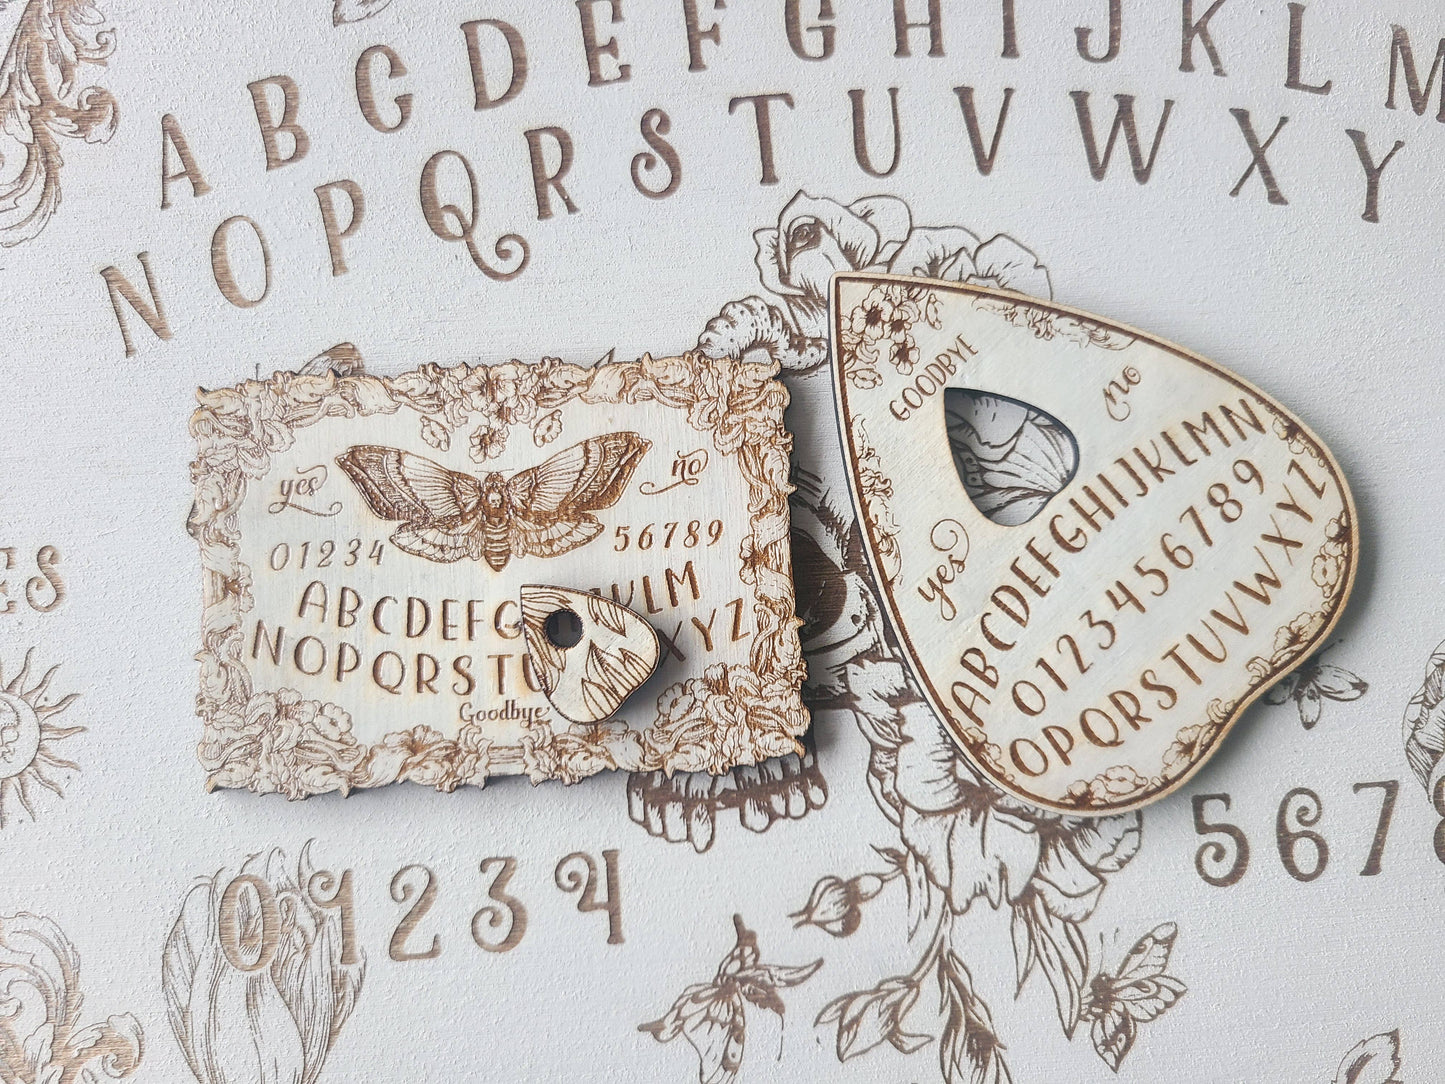 ABCDEFGHIJKLM
NOPQRSTUVWXY
yes
no
01234
56789
ABCDEFG KLM
NOPQRSTU XYZ
Goodbye
GOODBYE
no
yes
ABCDEFGHIJKLMN
0123456789
OPQRSTUVWXYZ
ES
01234
5678